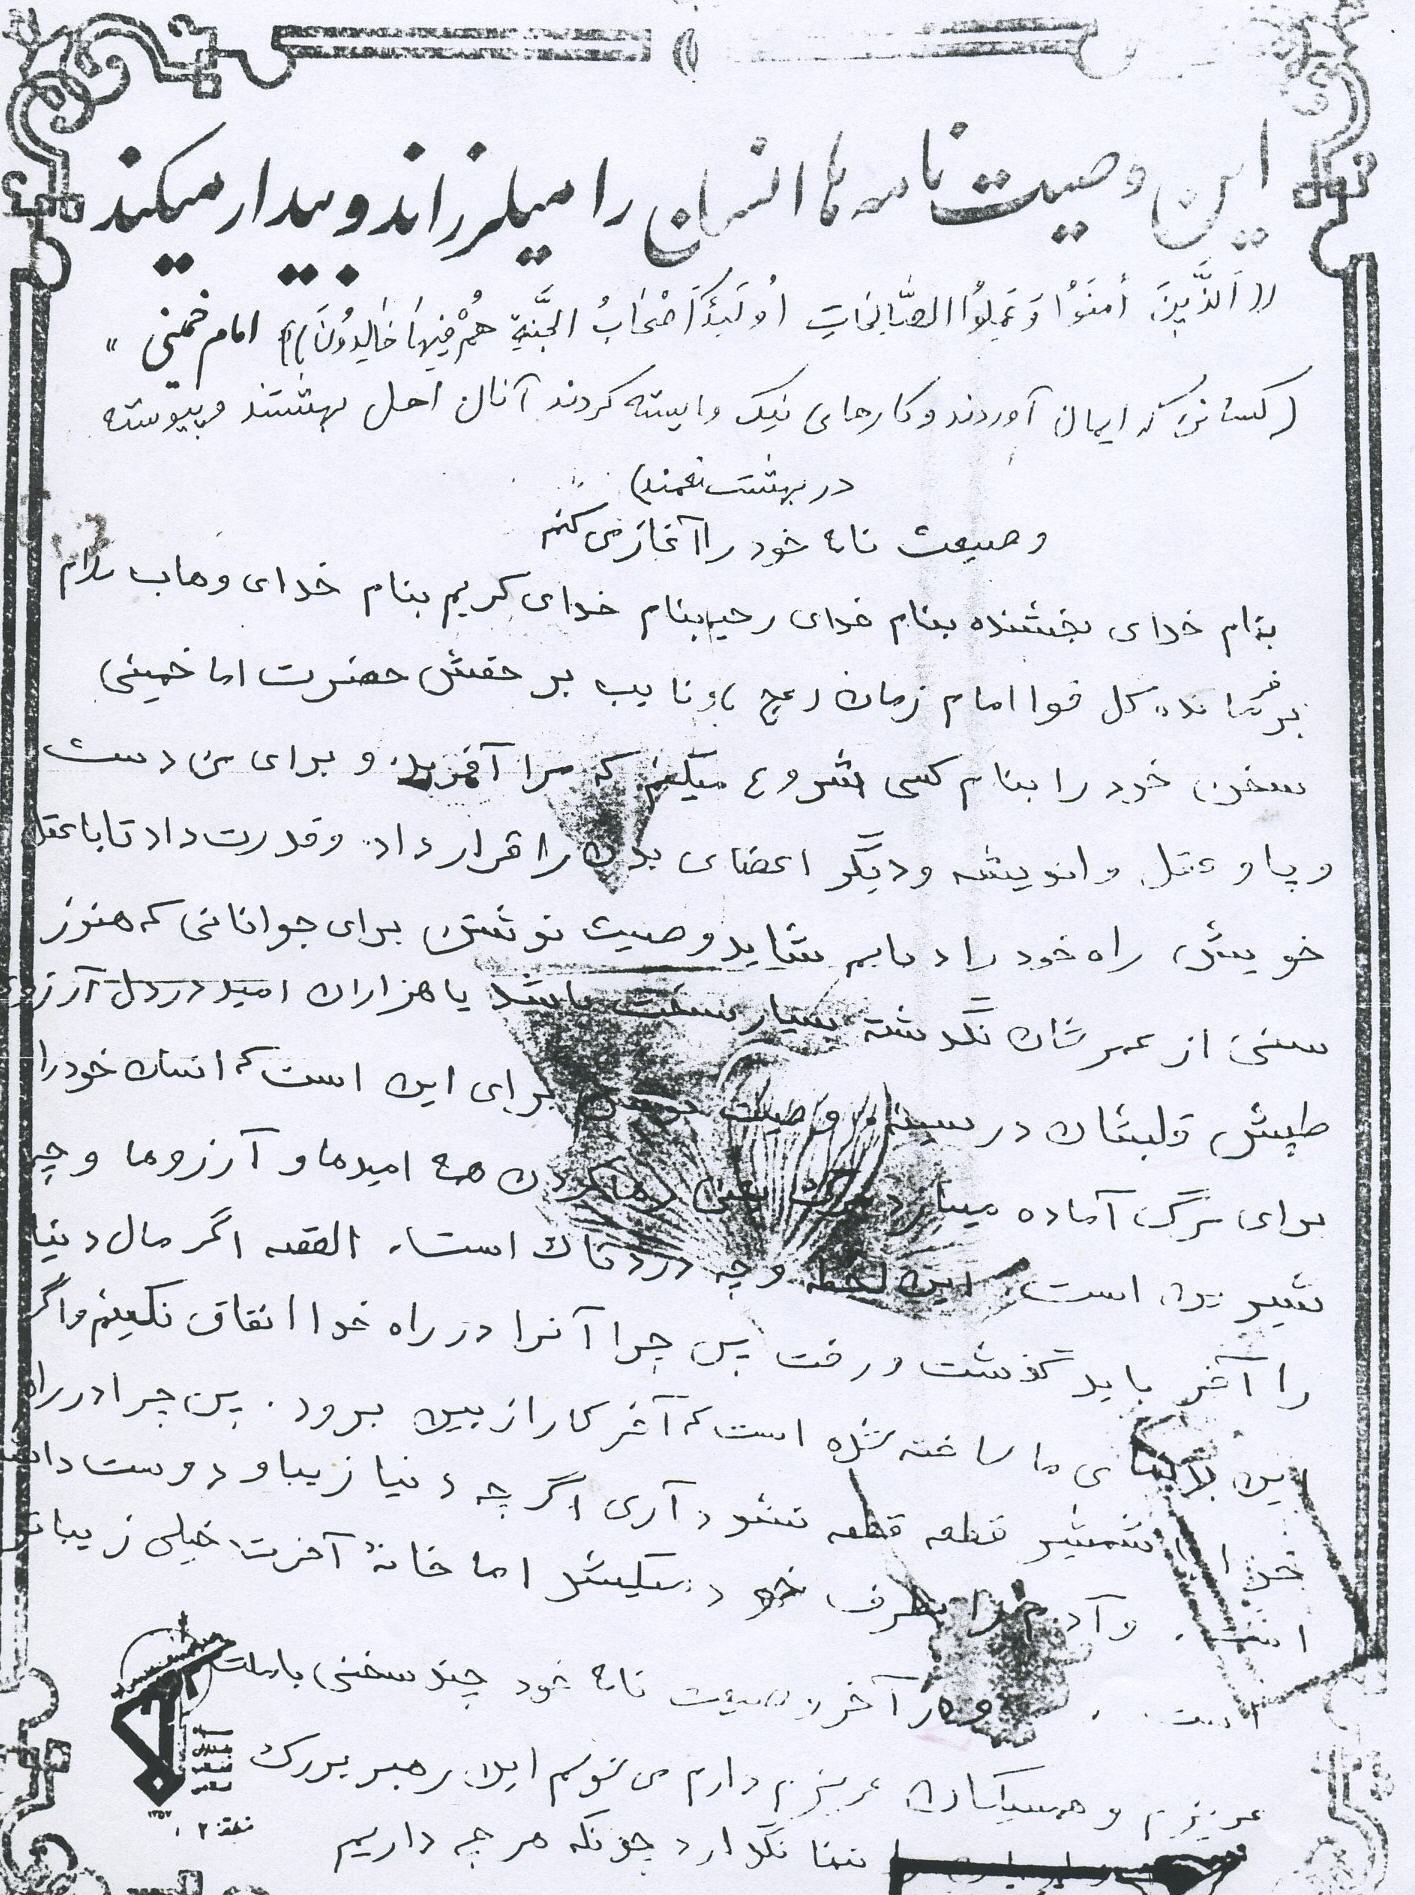 این وصیت نامه ها انسان را میلرزاند و بیدار میکند
((اَلَّذینَ أمَنَوُا وَ عَمِلوُا الصّالِحاتِ اُولَئِکَ اَصْحابُ الجَنَّةِ هُمْ فِیها خالِدوُنَ)) امام خمینی "
(کسانیکه ایمان آوردند و کارهای نیک و ایسته کردند آنان اهل بهشتند و پیوسته
در بهشت
وصیت نامه خود را آغاز می کنم
بنام خدای بخشنده بنام خدای رحیم بنام خدای کریم بنام خدای وهاب سلام
بر فرمانده کل قوا امام زمان (عج) و نایب بر حقش حضرت امام خمینی
سخن خود را بنام کسی شروع میکنم که مرا آفرید و برای من دست
و پا و عقل و اندیشه و دیگر اعضای بدن را قرار داد و قدرت داد تا با عقل
خویش راه خود را دیابم شاید وصیت نوشتن برای جوانانی که هنوز
سنی از عمرشان نگدشته بسیار سخت باشد یا هزاران امید در دل آرزوی
طپش قلبشان در سینه وصیت نوشتن برای این است که انسان خود را
برای مرگ آماده میسازد مرگ یعنی رها کردن همه امیدها و آرزوها و چه
شیرین است این لحظه و چه دردناک است القصه اگر مال دنیا
را آخر باید گذشت و رفت پس چرا آنرا در راه خدا انفاق نکنیم و اگر
این بدنهای ما ساخته شده است که آخر کار از بین برود. پس چرا در راه
خدا با شمشیر قطعه قطعه نشود آری اگر چه دنیا زیبا و دوست داشتنی
است و آدم را بطرف خود میکشد اما خانهٔ آخرت خیلی زیباتر
است. و در آخر وصیت نامه خود چند سخنی با ملت
عزیزم و همسیگاران عزیزم دارم می گویم این رهبر بزرگ
را تنها نگذارد چونکه هر چه داریم
سپاه
پاسداران
انقلاب
اسلامی
۱۳۵۷
منطقه ۲